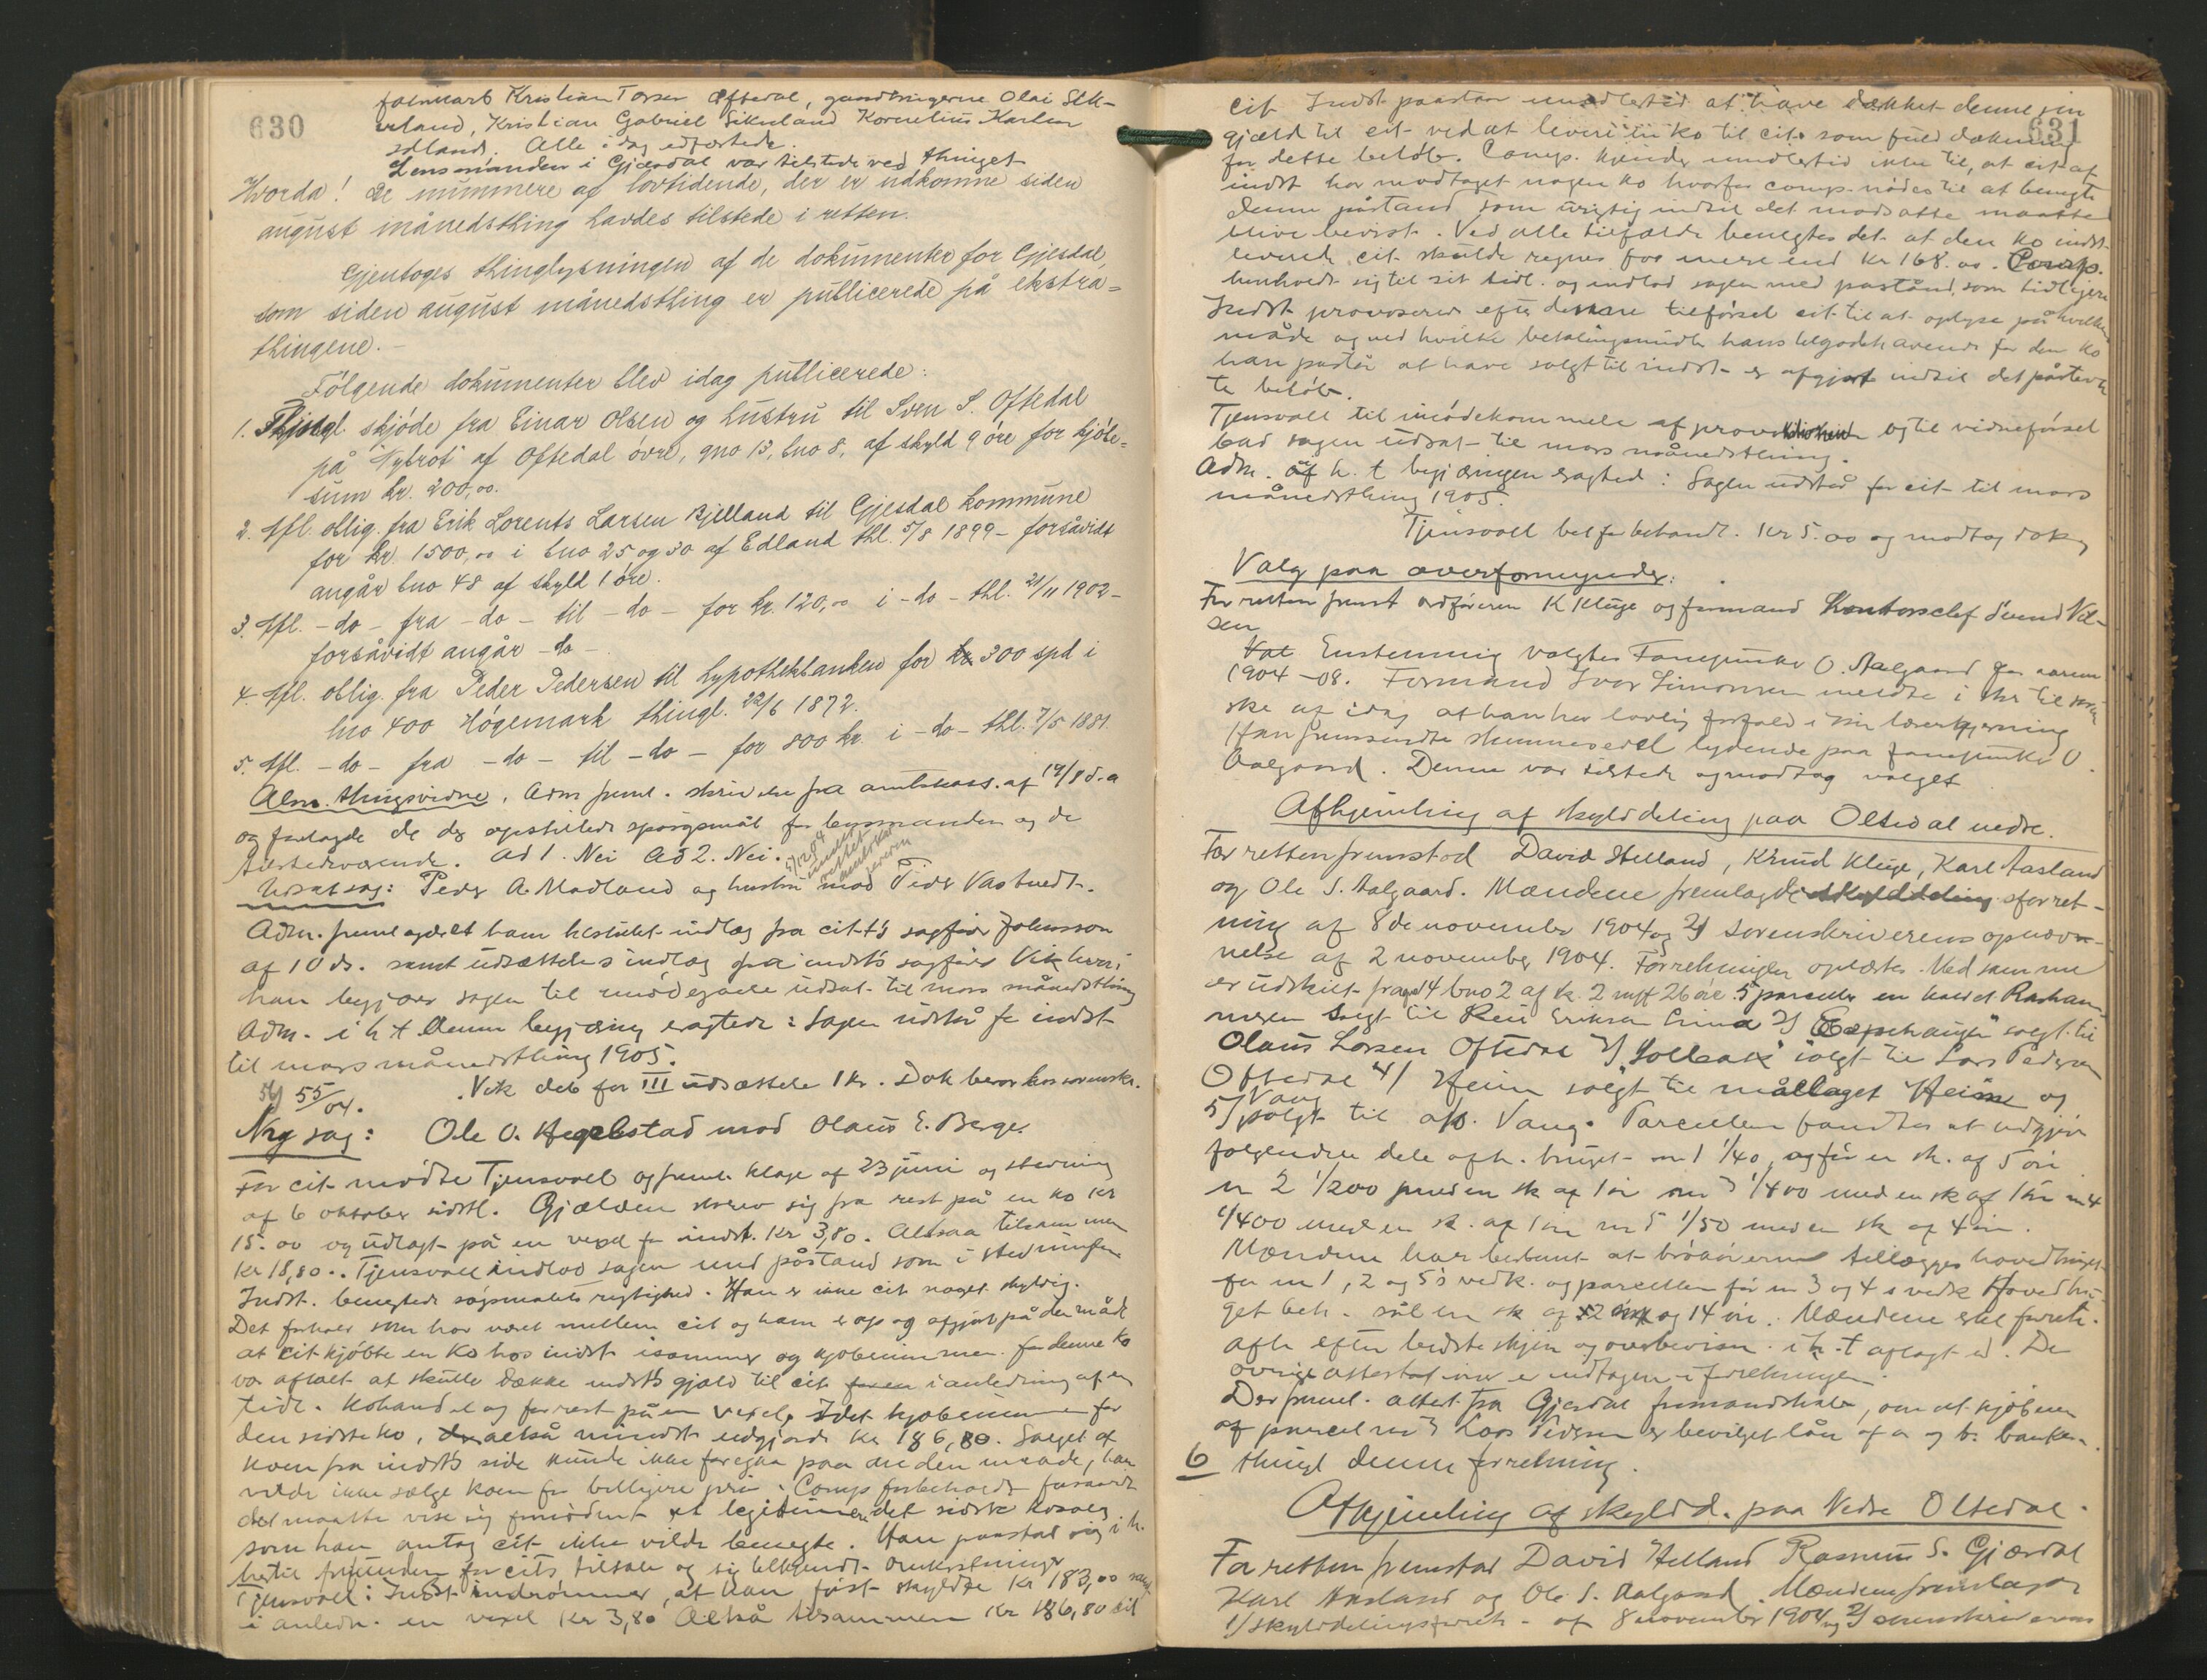 630
Kristian Torsen Oftedal, gaardbrugerne Olai Sik-
veland, Kristian Gabriel Sikveland Kornelius Karlsen
Alle idag edfæstede.
Lensmanden i Gjæsdal var tilstede ved thinget
Hvorda! De nummere af lovtidende, der er udkomne siden
august månedsthing havdes tilstede i retten.
Gjentoges thinglysningen af de dokumenter for Gjesdal,
som siden august månedsthing er publicerede på ekstra=
thingene.-
Følgende dokumenter blev idag publicerede:
1. skjøde fra Einar Olsen og hustru til Sven S. Oftedal
på "Nybrot" af Oftedal øvre, gno 13, bno 8, af skyld 9 øre for kjøbe=
sum kr. 200,00.
2. Afl. oblig. fra Erik Lorents Larsen Bjelland til Gjesdal kommune
for kr. 1500,00 i bno 25 og 30 af Edland thl. 5/8 1899 - forsåvidt
angår bno 48 af skyld 1 øre.
3. Afl. -do- fra -do- til -do- for kr. 120,00 i -do- thl. 21/11 1902-
forsåvidt angår -do-.
4. Afl. oblig. fra Peder Pedersen til hypothekbanken for kr 300 spd i
lno 400 Høgemark thingl. 22/6 1872.
5. Afl. -do- fra -do- til -do- for 800 kr. i -do- thl. 7/5 1881.
Alm. thingsvidne. Adm freml. skrivelse fra amtskass. af 19/8 d.a
og forelagde de der opstillede spørgsmål for lensmanden og de
tilstedeværende. Ad 1. Nei Ad 2. Nei.
Udsat sag: Peder A. Madland og hustru mod Peder Vasbuedt.
Adm. fremlagde et ham tilstillet indlæg fra cit-t's sagfører Johnsson
af 10 ds. samt udsættelsindlæg fra indst's sagfører Vik hvori
han begjærer sagen til imødegaaelse udsat til mars månedsthing
Adm. i h t denne begjæring eragtede: Sagen udstår for indst
til mars månedsthing 1905.
Vik deb for III udsættelse 1 kr. Dok beror hos sorenskr.
55/04.
Ny sag: Ole O. Hegelstad mod Olaus E. Berge.
For cit mødte Tjensvoll og freml. klage af 23 juni og stevning
af 6 oktober sidstl. Gjælden skrev sig fra rest på en ko kr
15.00 og udlagt på en vexel for indst. Kr 3,80. Altsaa tilsammen
Kr 18,80. Tjensvoll indlod sagen med påstand som i stevningen
Indst. benegtede søgsmålets rigtighed. Han er ikke cit noget skyldig.
Det forhold som har været mellem cit og ham er op og afgjort på den måde
at cit kjøbte en ko hos indst isommer og kjøbesummen for denne ko
var aftalt at skulle dække indst's gjæld til cit i anledning af en
tidl. kohandel og for rest på en vexel. Idet kjøbesummen for
den sidste ko, altså mindst udgjorde kr 186,80. Salget af
koen fra indst's side kunde ikke foregaa paa anden maade, han
vilde ikke sælge koen for billigere pris. Comp forbeholdt forsaavidt
det maatte vise sig fornødent at legitimere det sidste kosalg
som han antog cit ikke vilde benegte. Han paastod sig i h.
hertil frifunden for cits tiltale og sig tilkjendt omkostninger
Tjensvoll: Indst indrømmer, at han først skyldte kr 183,00
i anledn. en vexel kr 3,80 Altså tilsammen kr 186,80 til
631
cit Indst paastaar imidlertid at have dækket denne sin
gjæld til cit ved at levere en ko til cit som fuld dækning
for dette beløb. Comp. kjender imidlertid ikke til, at cit af
indst har modtaget nogen ko hvorfor comp. nødes til at benegte
denne påstand som urigtig indtil det modsatte maatte
blive bevist. Ved alle tilfælde benegtes det at den ko indst
leverede cit skulde regnes for mere end kr 168.00. Comp.
henholdt sig til sit tidl. og indlod sagen med påstand som tidligere
Indst provoserer efter denne tilførsel cit til at oplyse på hvilken
måde og ved hvilke betalingsmidler hans tilgodehavende for den ko
han påstår at have solgt til indst er afgjort indtil det påstevn
te beløb.
Tjensvoll til imødekommelse af provokationen og til vidneførsel
bad sagen udsat til mars månedsthing.
Adm. i h. t begjæringen eragted: Sagen udstår for cit til mars
månedsthing 1905.
Tjensvoll bet for behandl. Kr 5.00 og modtog dok
Valg paa overformynder.
For retten fremst ordføreren K Kluge og formand Kontorchef Svend Nil-
sen
Enstemmig valgtes Fanejunker O. Aalgaard for aarene
1904-08. Formand Ivar Simonsen meldte i skr til
ske af idag at han har lovlig forfald i sin lærergjerning
Han fremsendte stemmeseddel lydende paa fanejunker O.
Aalgaard. Denne var tilstede og modtog valget
Afhjemling af skylddeling paa Oltedal nedre.
For retten fremstod David Helland, Knud Kluge, Karl Aasland
og Ole S. Aalgaard. Mændene fremlagde skylddelingsforret-
ning af 8de november 1904 og 2) sorenskriverens opnævn-
nelse af 2 november 1904. Forretningen oplæstes. Ved samme
er udskilt fra gno 4 bno 2 af sk. 2 mrk 26 øre 5 parceller en kaldet
solgt til Reiel Eriksen Lima 2) solgt til
Olaus Larsen Oftedal 3) "Solbak" solgt til Lars Pedersen
Oftedal 4) Heim solgt til mållaget "Heim" og
5) Vang solgt til afh. Vang. Parcellerne fandtes at udgjøre
følgende dele afh. bruget no 1 1/40, og får en sk. af 5 øre
no 2 1/200 med en sk af 1 øre no 3 1/400 med en sk af 1 øre no 4
1/400 med en sk. af 1 øre no 5 1/50 med en sk af 4 øre.
Mændene har bestemt at brøkøreren tillægges hovedbruget
for no 1, 2 og 5's vedk. og parcellen for no 3 og 4's vedk Hovedbru
get beh. sål en sk af 2 mrk og 14 øre. Mændene
afh efter bedste skjøn og overbevisn. i h. t aflagt ed. De
øvrige attestationer er indtagen i forretningen.
Der freml. attest fra Gjesdal formandskab, om at kjøberen
af parcel no 3 Lars Pedersen er bevilget lån af a og b. banken.
6 thingl denne forretning.
Afhjemling af skyldd. paa Nedre Oltedal.
For retten fremstod David Helland Rasmus S. Gjesdal
Karl Aasland og Ole S. Aalgaard. Mændene fremlagde
1/ skylddelingsforretn. af 8 november 1904 og 2) sorenskriverens